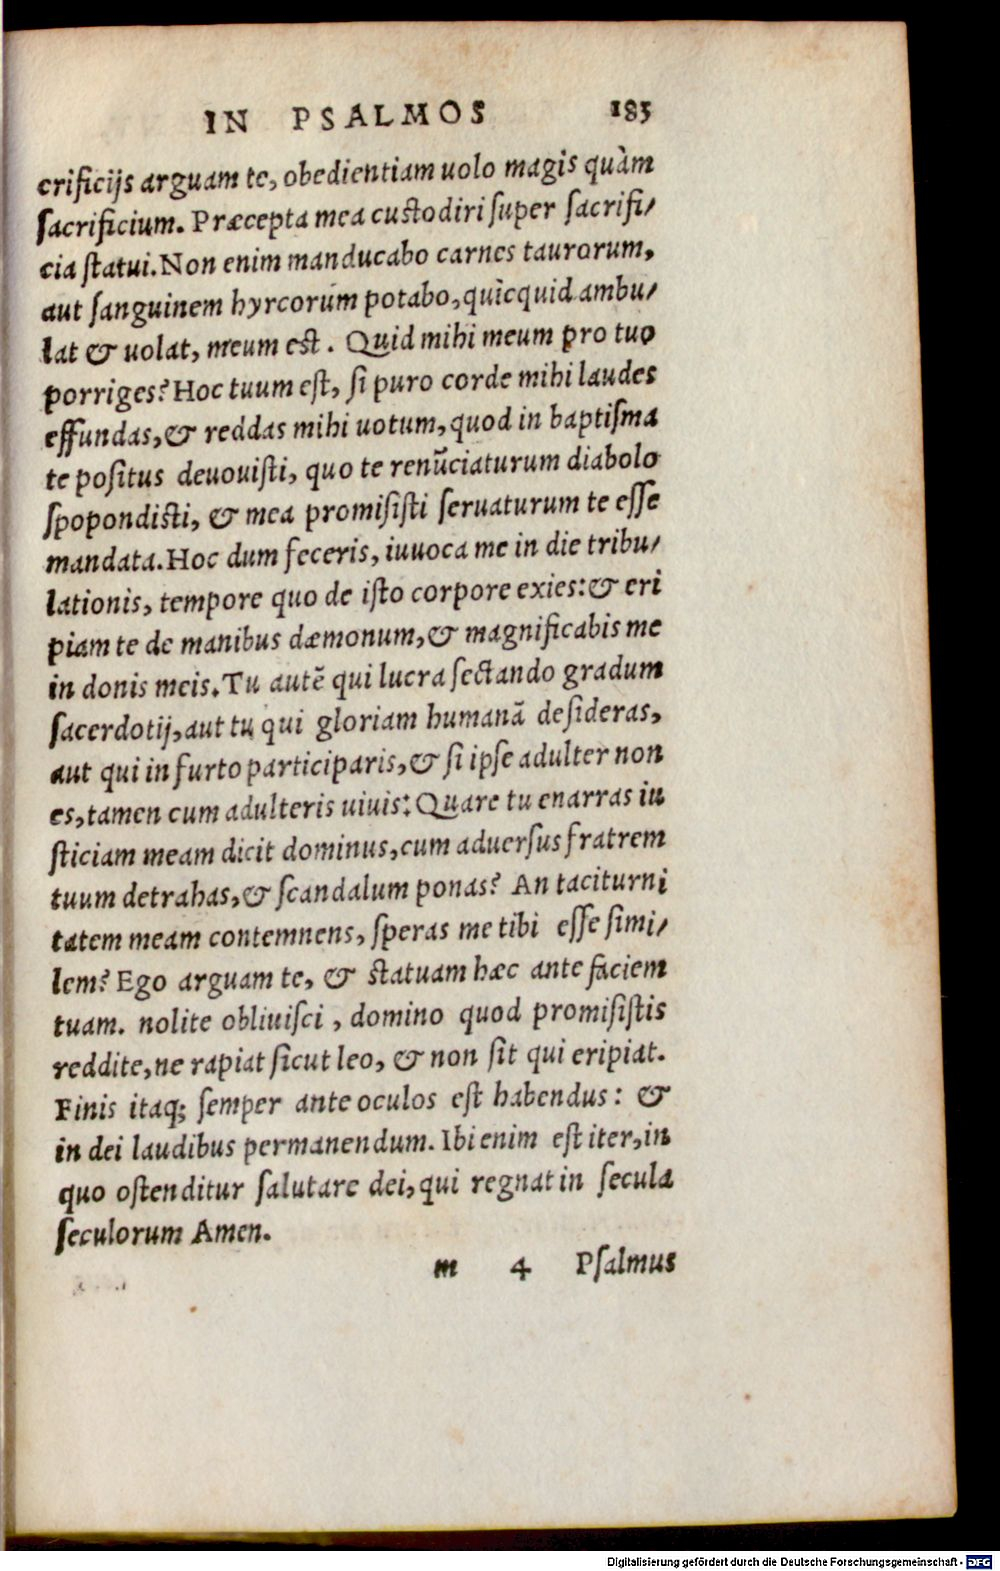 IN PSALMOS 183
crificijs arguam te, obedientiam uolo magis quàm
ſacrificium. Præcepta mea cuſtodiri ſuper ſacrifi/
cia ſtatui. Non enim manducabo carnes taurorum,
aut ſanguinem hyrcorum potabo, quicquid ambu/
lat & uolat, meum eſt. Quid mihi meum pro tuo
porriges? Hoc tuum eſt, ſi puro corde mihi laudes
effundas, & reddas mihi uotum, quod in baptiſma
te poſitus deuouiſti, quo te renũciaturum diabolo
ſpopondiſti, & mea promiſiſti ſeruaturum te eſſe
mandata. Hoc dum feceris, iuuoca me in die tribu/
lationis, tempore quo de iſto corpore exies: & eri
piam te de manibus dæmonum, & magnificabis me
in donis meis. Tu autẽ qui lucra ſectando gradum
ſacerdotij, aut tu qui gloriam humanã deſideras,
aut qui in furto participaris, & ſi ipſe adulter non
es, tamen cum adulteris uiuis: Quare tu enarras iu
ſticiam meam dicit dominus, cum aduerſus fratrem
tuum detrahas, & ſcandalum ponas? An taciturni
tatem meam contemnens, ſperas me tibi eſſe ſimi/
lem? Ego arguam te, & ſtatuam hæc ante faciem
tuam. nolite obliuiſci, domino quod promiſiſtis
reddite, ne rapiat ſicut leo, & non ſit qui eripiat.
Finis itaq; ſemper ante oculos eſt habendus: &
in dei laudibus permanendum. Ibi enim eſt iter, in
quo oſtenditur ſalutare dei, qui regnat in ſecula
ſeculorum Amen.
m 4 Pſalmus
Digitalisierung gefördert durch die Deutsche Forschungsgemeinschaft - DFG